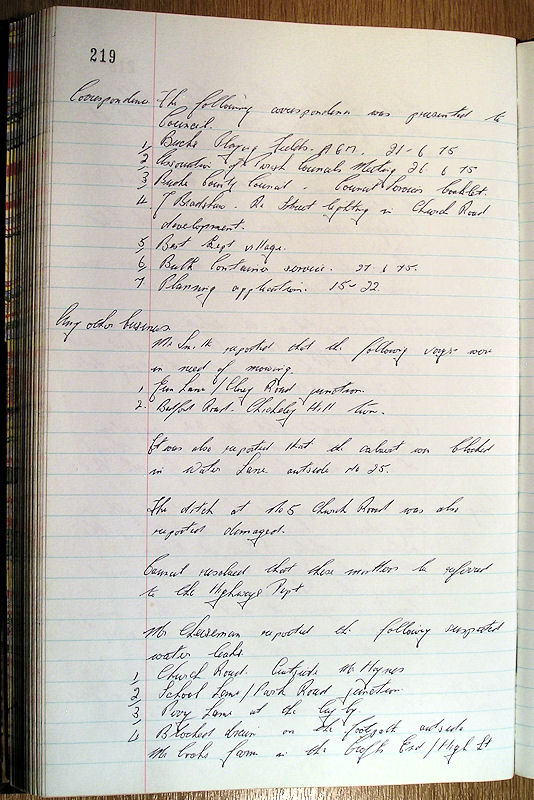 219
Correspondence. The following correspondence was presented to
Council.
1, Bucks Playing Fields. A.G.M. 21-6 75
2, Association of Parish Councils Meeting 26 6 75
3, Bucks County Council - Council Services booklet.
4, J Bradshaw. Re Street lighting in Church Road
development.
5, Best Kept village.
6, Bulk Container service. 27 6 75.
7, Planning application. 15-22.
Any other business
Mr Smith reported that the following verges were
in need of mowing.
1, Gun Lane / Olney Road junction.
2. Bedford Road. Chicheley Hill turn.
It was also reported that the culvert was blocked
in Water Lane outside No 25.
The ditch at No 5 Church Road was also
reported damaged.
Council resolved that these matters be referred
to the Highways Dept
Mr Cheeseman reported the following suspected
water leaks
1, Church Road. Outside Mr Haynes
2, School Lane / Park Road junction
3, Perry Lane at the lay-by.
4, Blocked drain on the footpath outside
Mr farm in the Crofts End / High St